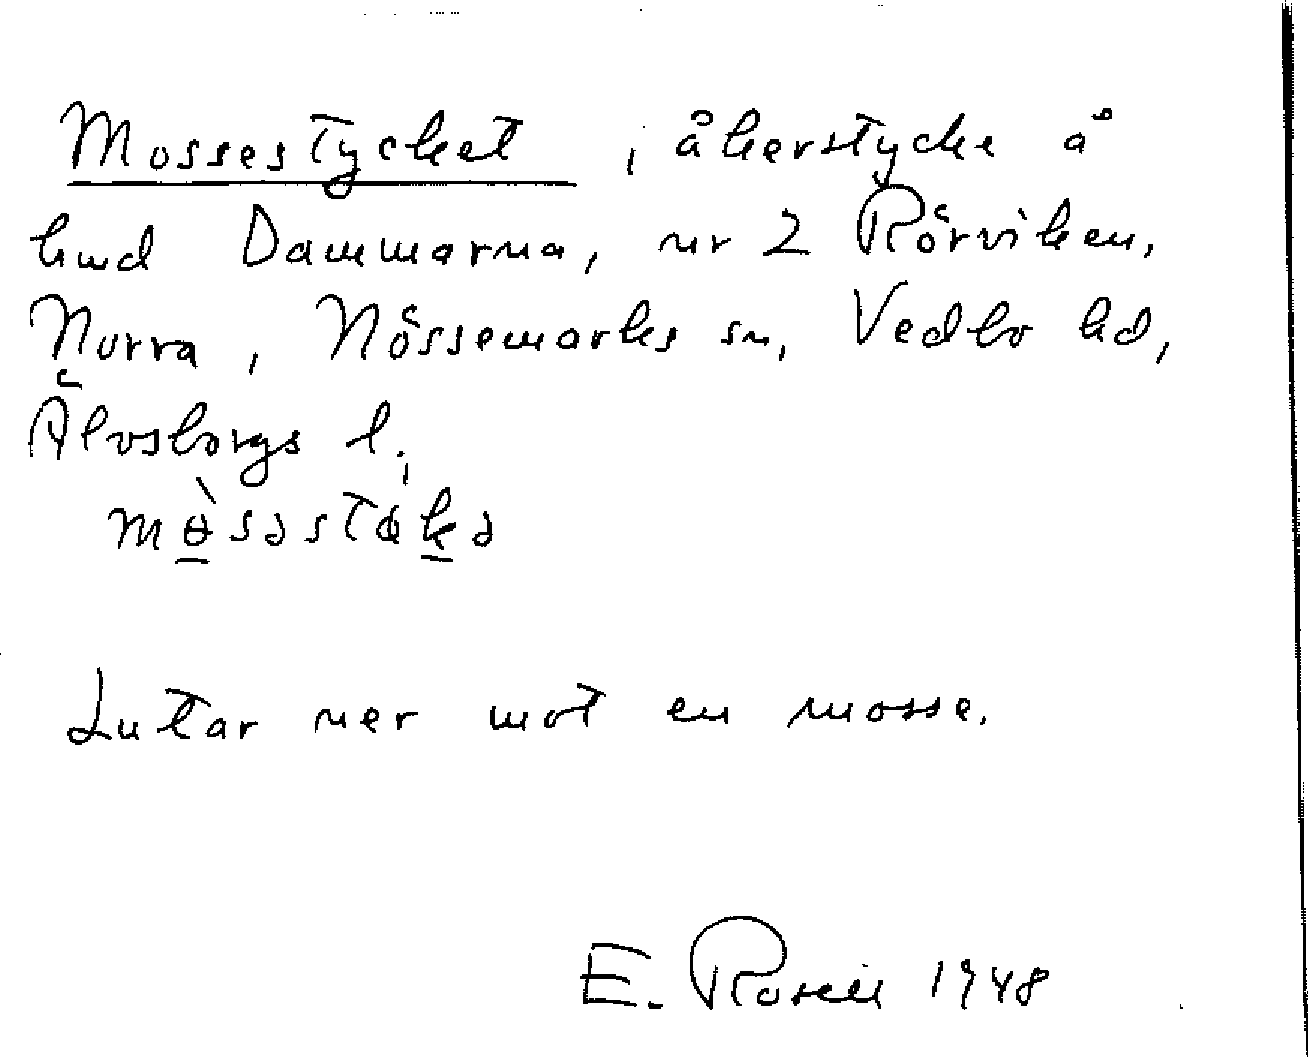 Mossestycket, åkerstycke å
hmd Dammarna, nr 2 Rörviken,
Norra, Nössemarks sn, Vedbo hd,
Älvsborgs l.,
mɵ̀səstøkə
Lutar ner mot en mosse.
E. Rosell 1948